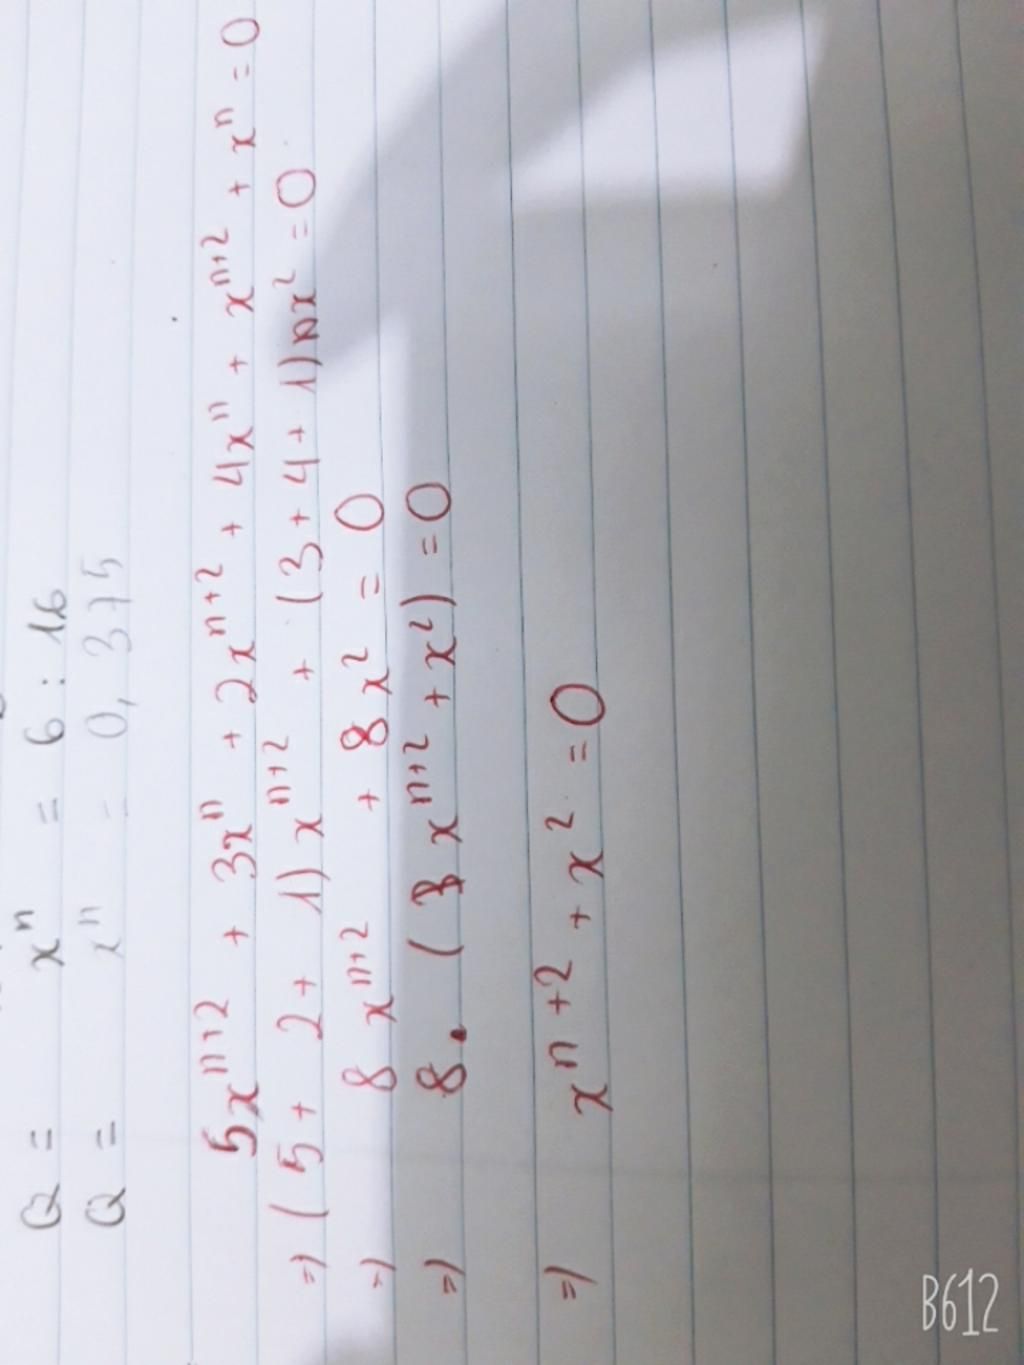 Q = xⁿ = 6 : 16
Q = xⁿ = 0,375
5xⁿ⁺² + 3xⁿ + 2xⁿ⁺² + 4xⁿ + xⁿ⁺² + xⁿ = 0
=) (5 + 2 + 1) xⁿ⁺² + (3 + 4 + 1) x² = 0
=) 8 xⁿ⁺² + 8 x² = 0
=) 8. ( xⁿ⁺² + x²) = 0
=) xⁿ⁺² + x² = 0
B612